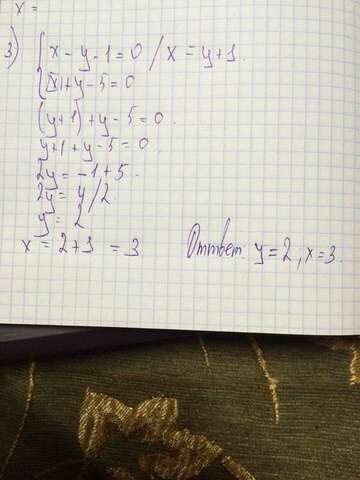 x =
3) { x - y - 1 = 0 / x = y + 1.
{ |x| + y - 5 = 0
(y+1) + y - 5 = 0.
y + 1 + y - 5 = 0.
2y = -1 + 5.
2y = 4 / 2.
y = 2
x = 2 + 1 = 3 Ответ: y = 2; x = 3.